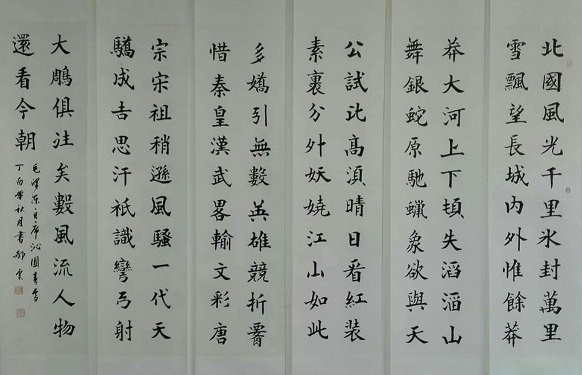 北國風光千里氷封萬里
雪飄望長城内外惟餘莽
莽大河上下頓失滔滔山
舞銀蛇原馳蠟象欲與天
公試比高須晴日看紅裝
素裹分外妖嬈江山如此
多嬌引無數英雄競折腰
惜秦皇漢武畧輸文彩唐
宗宋祖稍遜風騷一代天
驕成吉思汗祇識彎弓射
大鵰俱往矣數風流人物
還看今朝
毛澤東主席沁園春雪
丁酉年秋月書